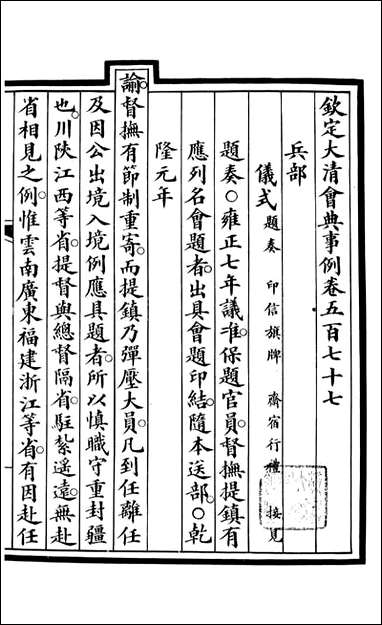 欽定大清會典事例卷五百七十七
兵部
儀式題奏　印信旗牌　齋宿行禮　接見
題奏○雍正七年議准。保題官員。督撫提鎮有
應列名會題者。出具會題印結。隨本送部。○乾
隆元年
諭。督撫有節制重寄。而提鎮乃彈壓大員。凡到任離任
及因公出境入境例應具題者。所以慎職守重封疆
也。川陝江西等省。提督與總督隔省。駐紮遙遠。無赴
省相見之例。惟雲南廣東福建浙江等省。有因赴任